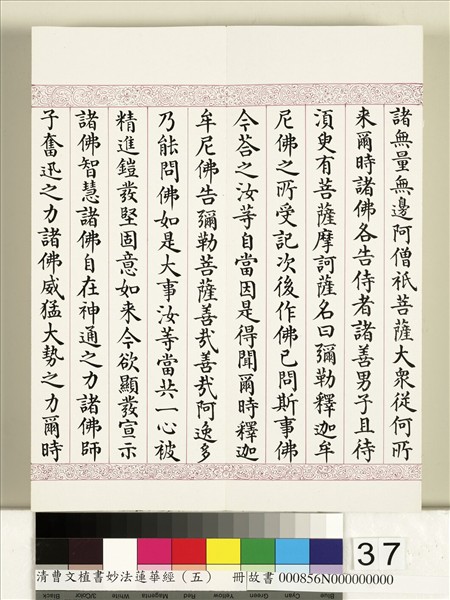 諸無量無邊阿僧祇菩薩大衆從何所
来爾時諸佛各告侍者諸善男子且待
湏臾有菩薩摩訶薩名曰彌勒釋迦牟
尼佛之所受記次後作佛已問斯事佛
今荅之汝等自當因是得聞爾時釋迦
牟尼佛告彌勒菩薩善哉善哉阿逸多
乃能問佛如是大事汝等當共一心被
精進鎧發堅固意如来今欲顯發宣示
諸佛智慧諸佛自在神通之力諸佛師
子奮迅之力諸佛威猛大勢之力爾時
37
清曹文植書妙法蓮華經（五） 冊故書 000856N000000000
Black 3/Color White Magenta Red Yellow Green Cyan Blue